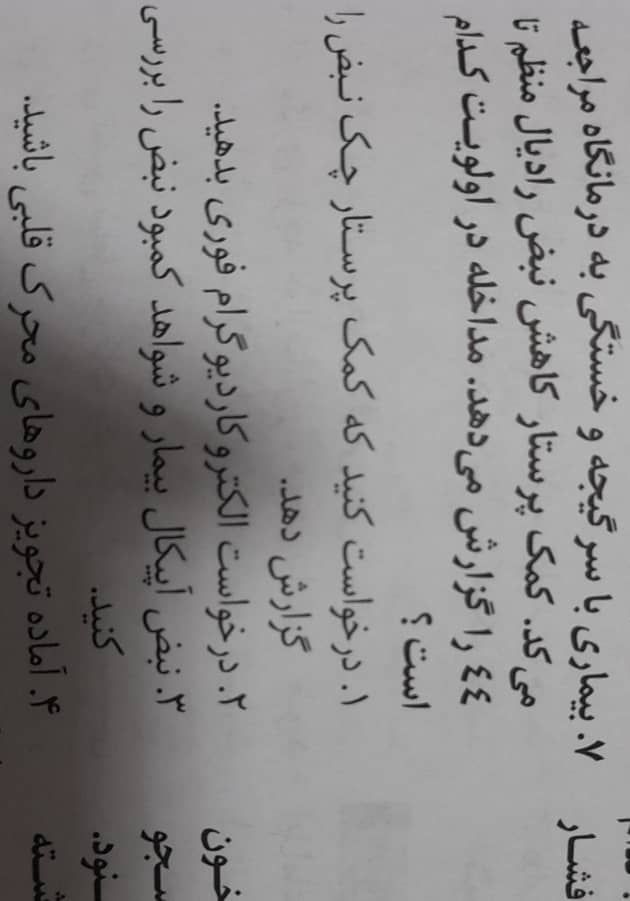 ۷. بیماری با سر گیجه و خستگی به درمانگاه مراجعه
می کد. کمک پرستار کاهش نبض رادیال منظم تا
٤٤ را گزارش می‌دهد. مداخله در اولویت کدام
است؟
۱. درخواست کنید که کمک پرستار چک نبض را
گزارش دهد.
۲. درخواست الکتروکاردیوگرام فوری بدهید.
۳. نبض آپیکال بیمار و شواهد کمبود نبض را بررسی
کنید.
۴. آماده تجویز داروهای محرک قلبی باشید.
فشار
خون
سجو
نود.
شته